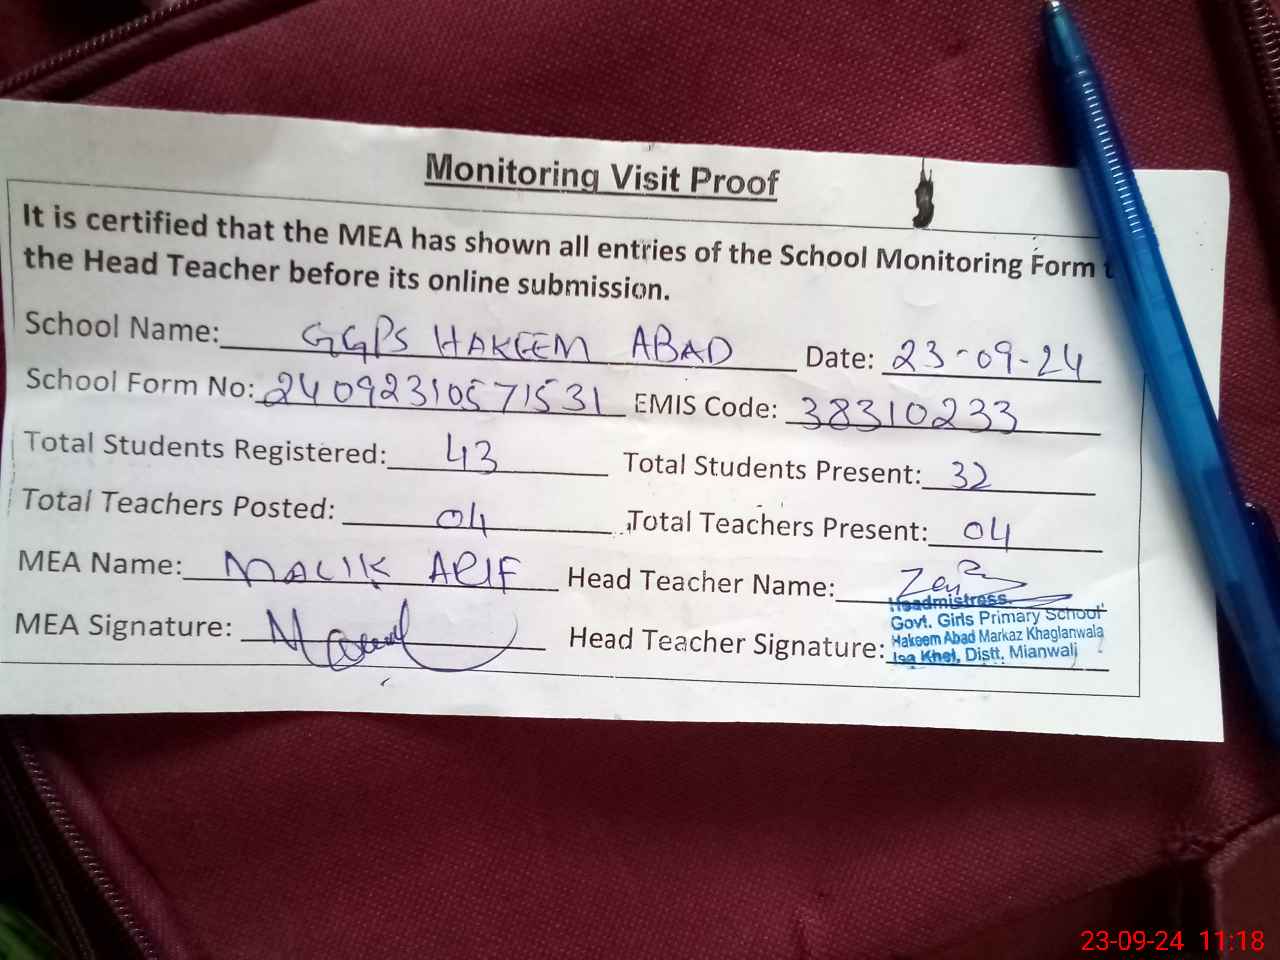 Monitoring Visit Proof
It is certified that the MEA has shown all entries of the School Monitoring Form
the Head Teacher before its online submission.
School Name: GGPS HAKEEM ABAD Date: 23-09-24
School Form No: 24092310571531 EMIS Code: 38310233
Total Students Registered: 43 Total Students Present: 32
Total Teachers Posted: 04 Total Teachers Present: 04
MEA Name: MALIK ARIF Head Teacher Name:
Headmistress.
Govt. Girls Primary School
MEA Signature: Head Teacher Signature: Hakeem Abad Markaz Khaglanwala
Isa Khel, Distt. Mianwali
23-09-24 11:18